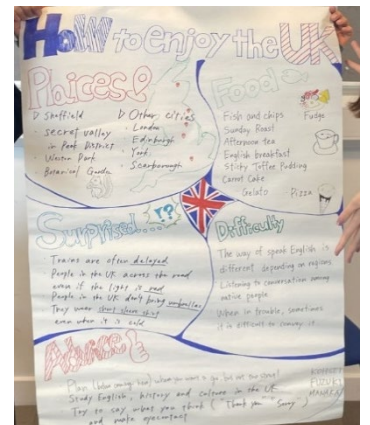 How to enjoy the UK
Places
D Sheffield
· secret valley
in Peak District
· Weston Park
· Botanical Garden
D Other cities
· London
· Edinburgh
· York
· Scarborough
Food
Fish and chips
Sunday Roast
Afternoon tea
English breakfast
Sticky Toffee Pudding
Carrot Cake
Gelato
· Fudge
· Pizza
Surprised....!?
· Trains are often delayed
· People in the UK across the road
even if the light is red
· People in the UK don't bring umbrellas
· They wear short sleeve shirt
even when it is cold
Difficulty
The way of speak English is
different depending on regions.
Listening to conversation among
native people.
When in trouble, sometimes
it is difficult to convey it.
Advice
Plan (before coming here) where you want to go
Study English, history and culture in the UK
Try to say what you think ("Thank you" "Sorry")
and make eyecontact